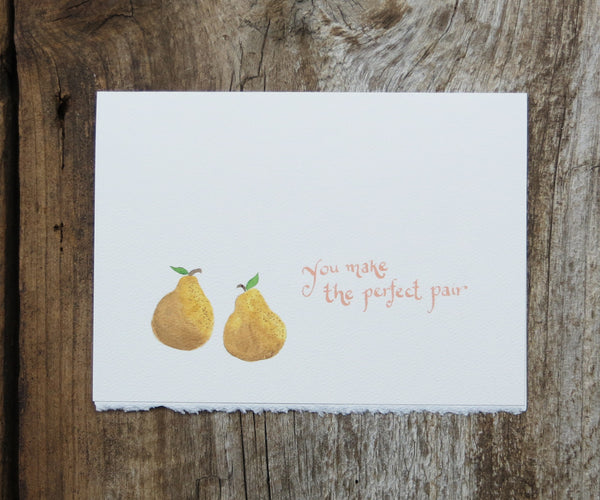 you make
the perfect pair